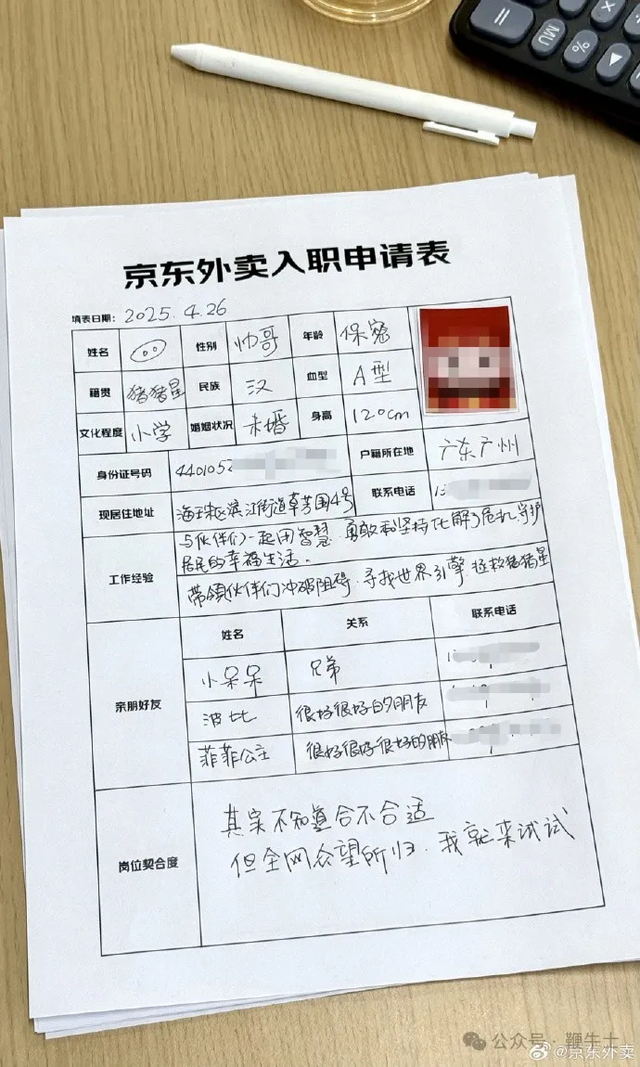 =
MU
%
京东外卖入职申请表
填表日期： 2025. 4. 26
姓名 性别 帅哥 年龄 保密
籍贯 猪猪星 民族 汉 血型 A型
文化程度 小学 婚姻状况 未婚 身高 120cm
身份证号码 4401052 户籍所在地 广东广州
现居住地址 海珠区滨江街道草芳围4号 联系电话 1
工作经验
与伙伴们一起用智慧、勇敢和坚持化解了危机,守护
居民的幸福生活。
带领伙伴们冲破阻碍、寻找世界引擎,拯救猪猪星
亲朋好友
姓名 关系 联系电话
小呆呆 兄弟 1
波比 很好很好的朋友
菲菲公主 很好很好很好的朋友
岗位契合度
其实不知道合不合适
但全网众望所归、我就来试试
公众号·鞭牛士
@京东外卖